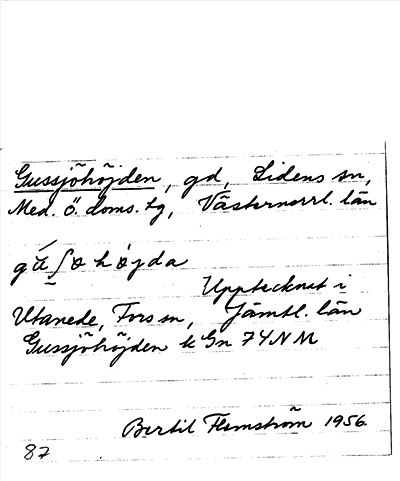 Gussjöhöjden, gd, Lidens sn,
Med. ö. doms. tg, Västernorrl. län
Upptecknat i
Utanede, Fors sn, Jämtl. län
Gussjöhöjden k Gn 74NM
Bertil Flemström 1956.
87